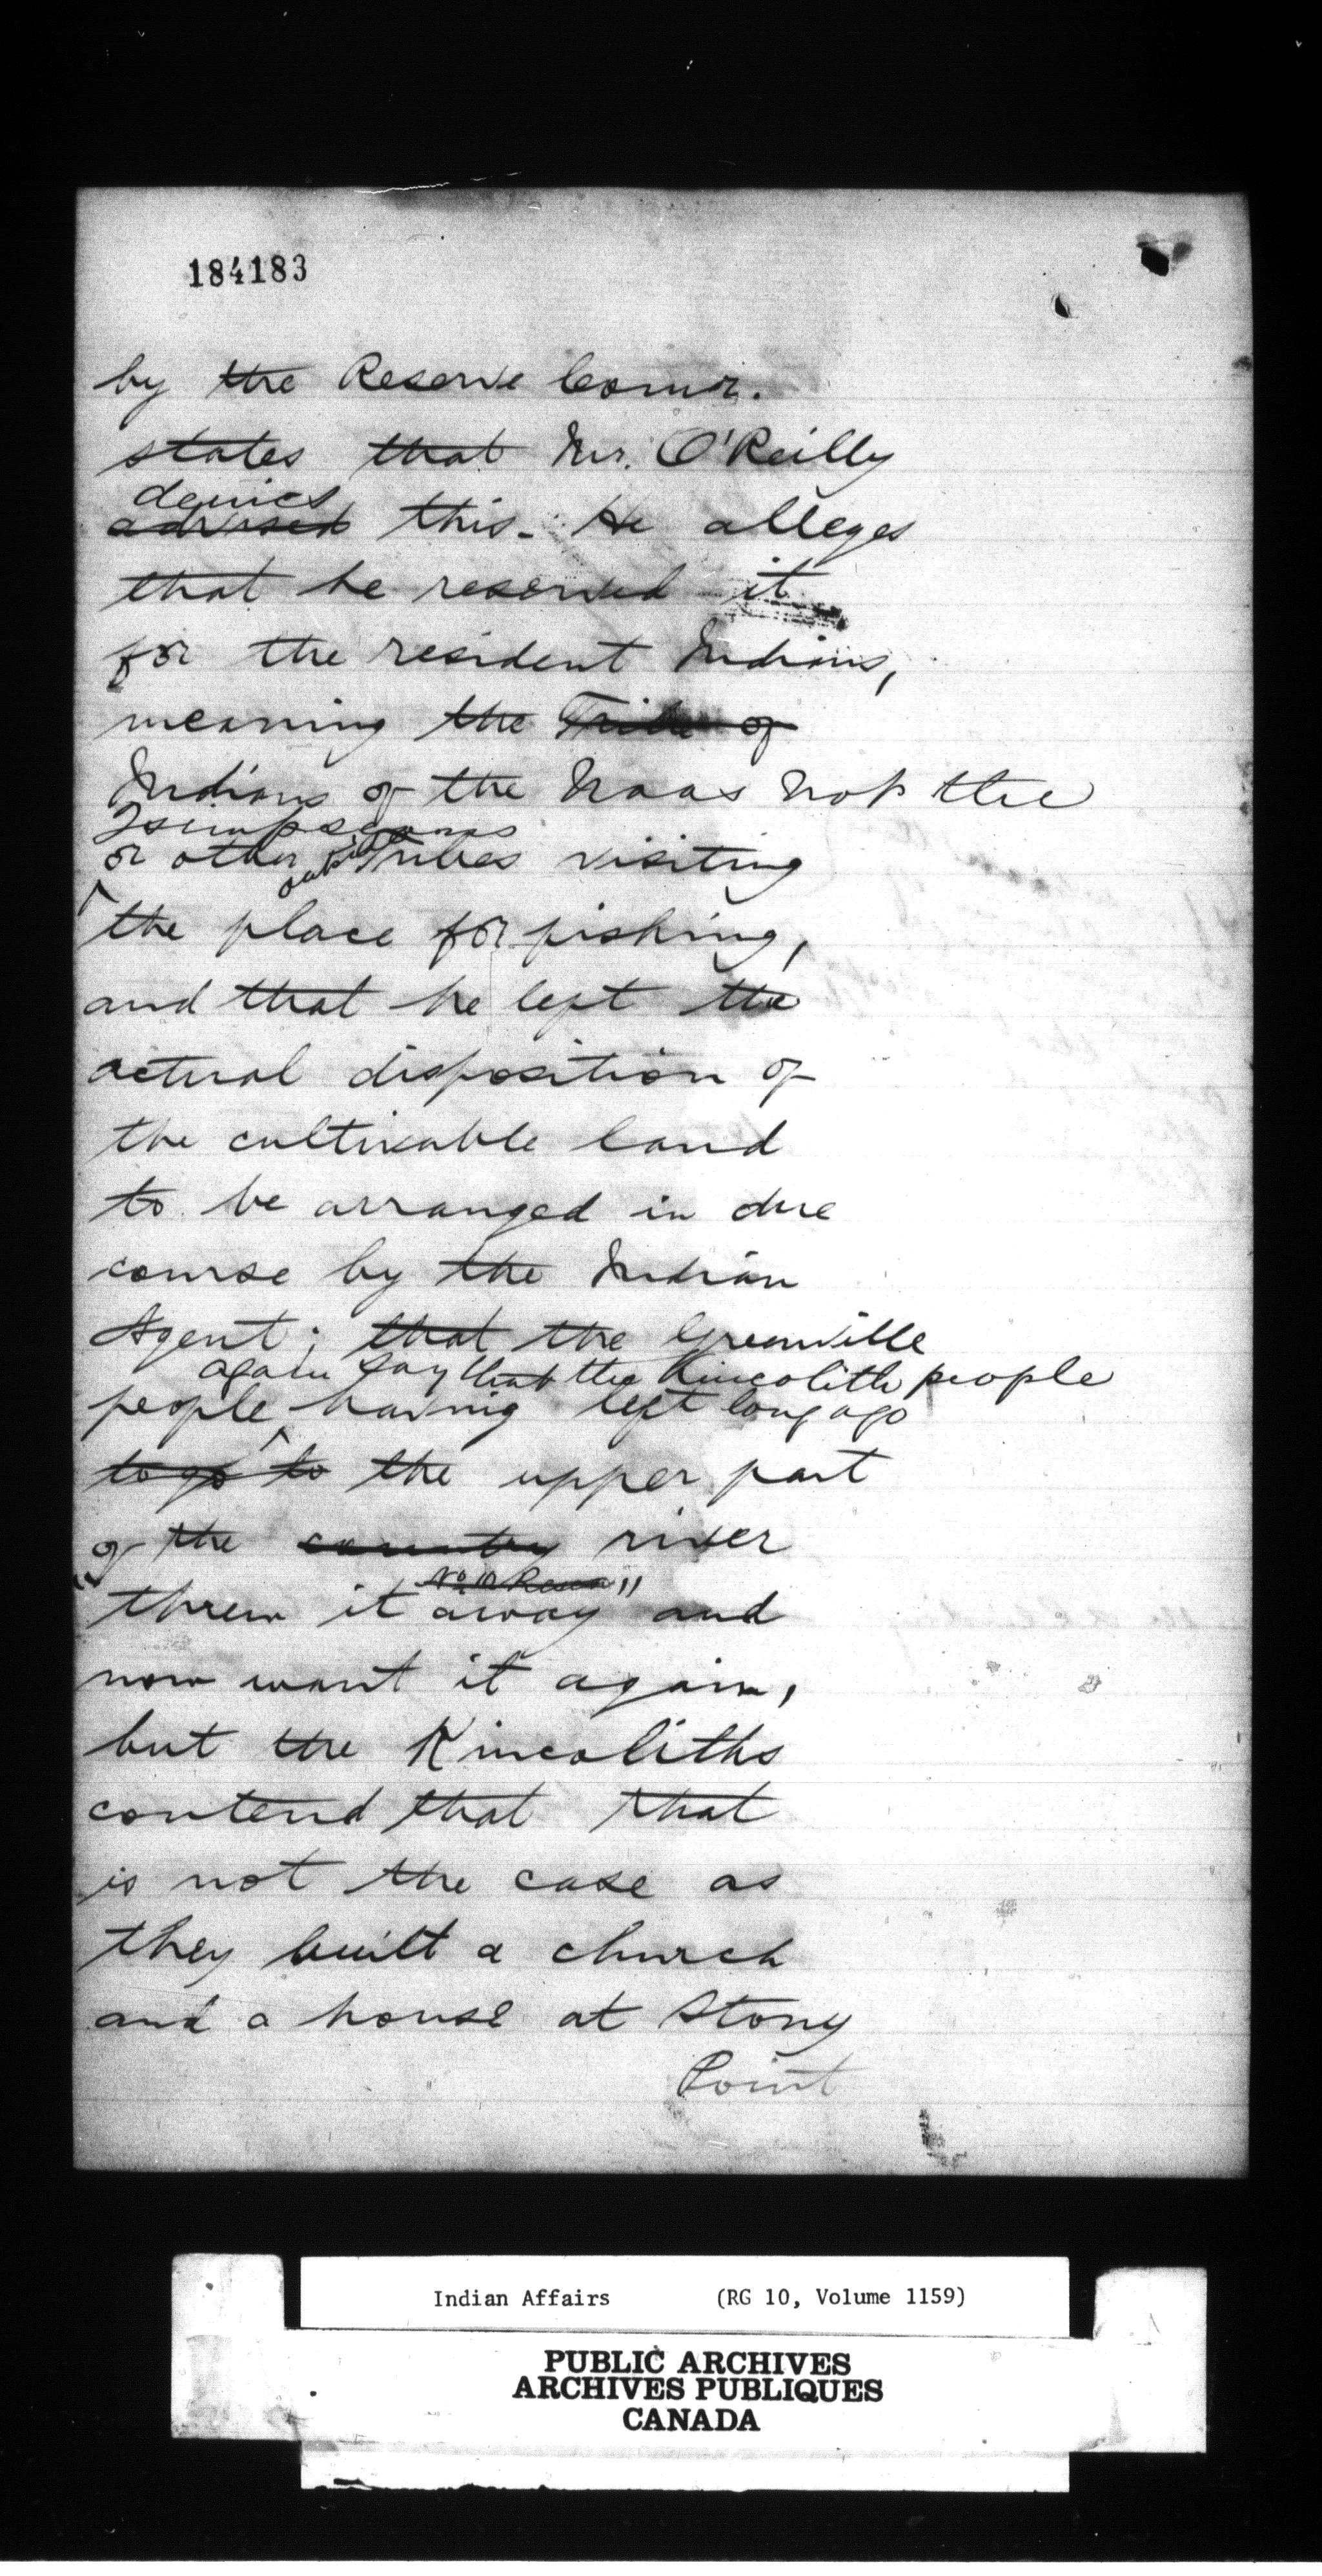 184183
by the Reserve Commr.
states that Mr. O'Reilly
denies
advised this. He alleges
that he reserved it
for the resident Indians,
meaning the Tribe of
Indians of the Naas not the
Tsimpseans
or other outside Tribes visiting
the place for fishing,
and that he left the
actual disposition of
the cultivable land
to be arranged in due
course by the Indian
Agent; that the Greenville
again say that the Kincolith people
people having left long ago
to go to the upper part
of the country river
No. 10 Reserve
"threw it away" and
now want it again,
but the Kincoliths
contend that that
is not the case as
they built a church
and a house at Stony
Point
Indian Affairs (RG 10, Volume 1159)
PUBLIC ARCHIVES
ARCHIVES PUBLIQUES
CANADA